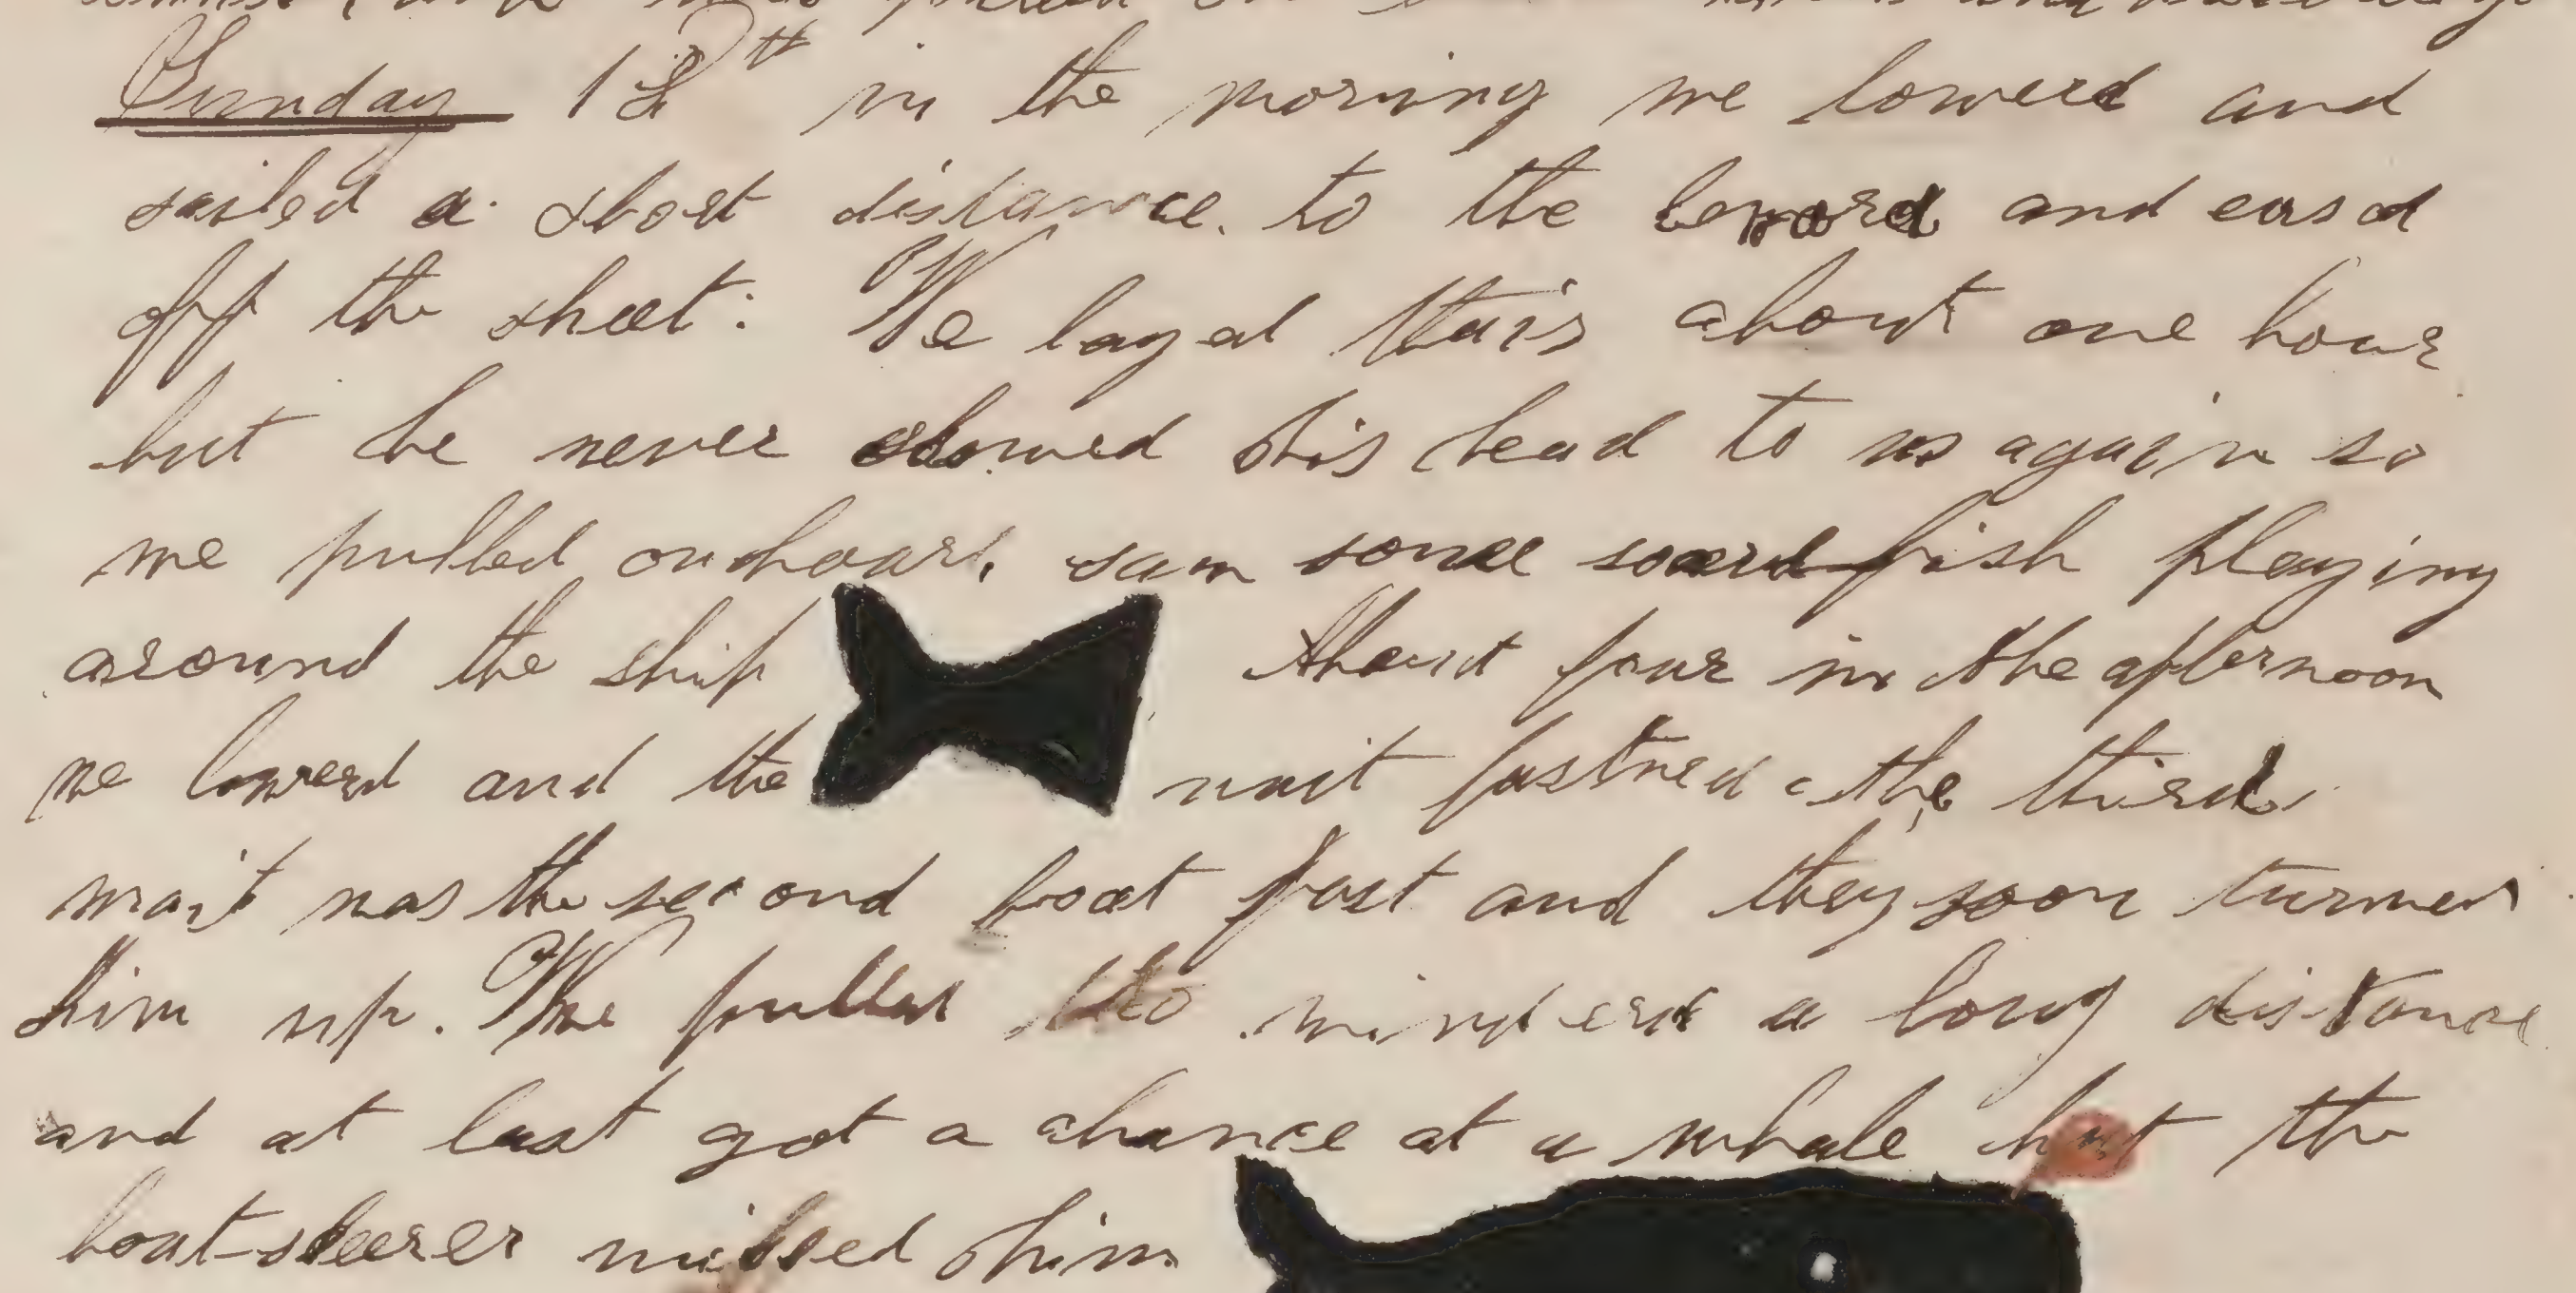 Sunday 12th in the morning we lowerd and
sailed a short distance. to the leward and easd
off the sheet: We layed thair about one hour
but he never showed his head to us again so
we pulled onboard, saw some sword-fish playing
around the ship About four in the afternoon
we lowerd and the wait fastned the third
wait was the second boat fast and they soon turned
him up. We pulled to winderd a long distance
and at last got a chance at a whale but the
boat-steerer missed him